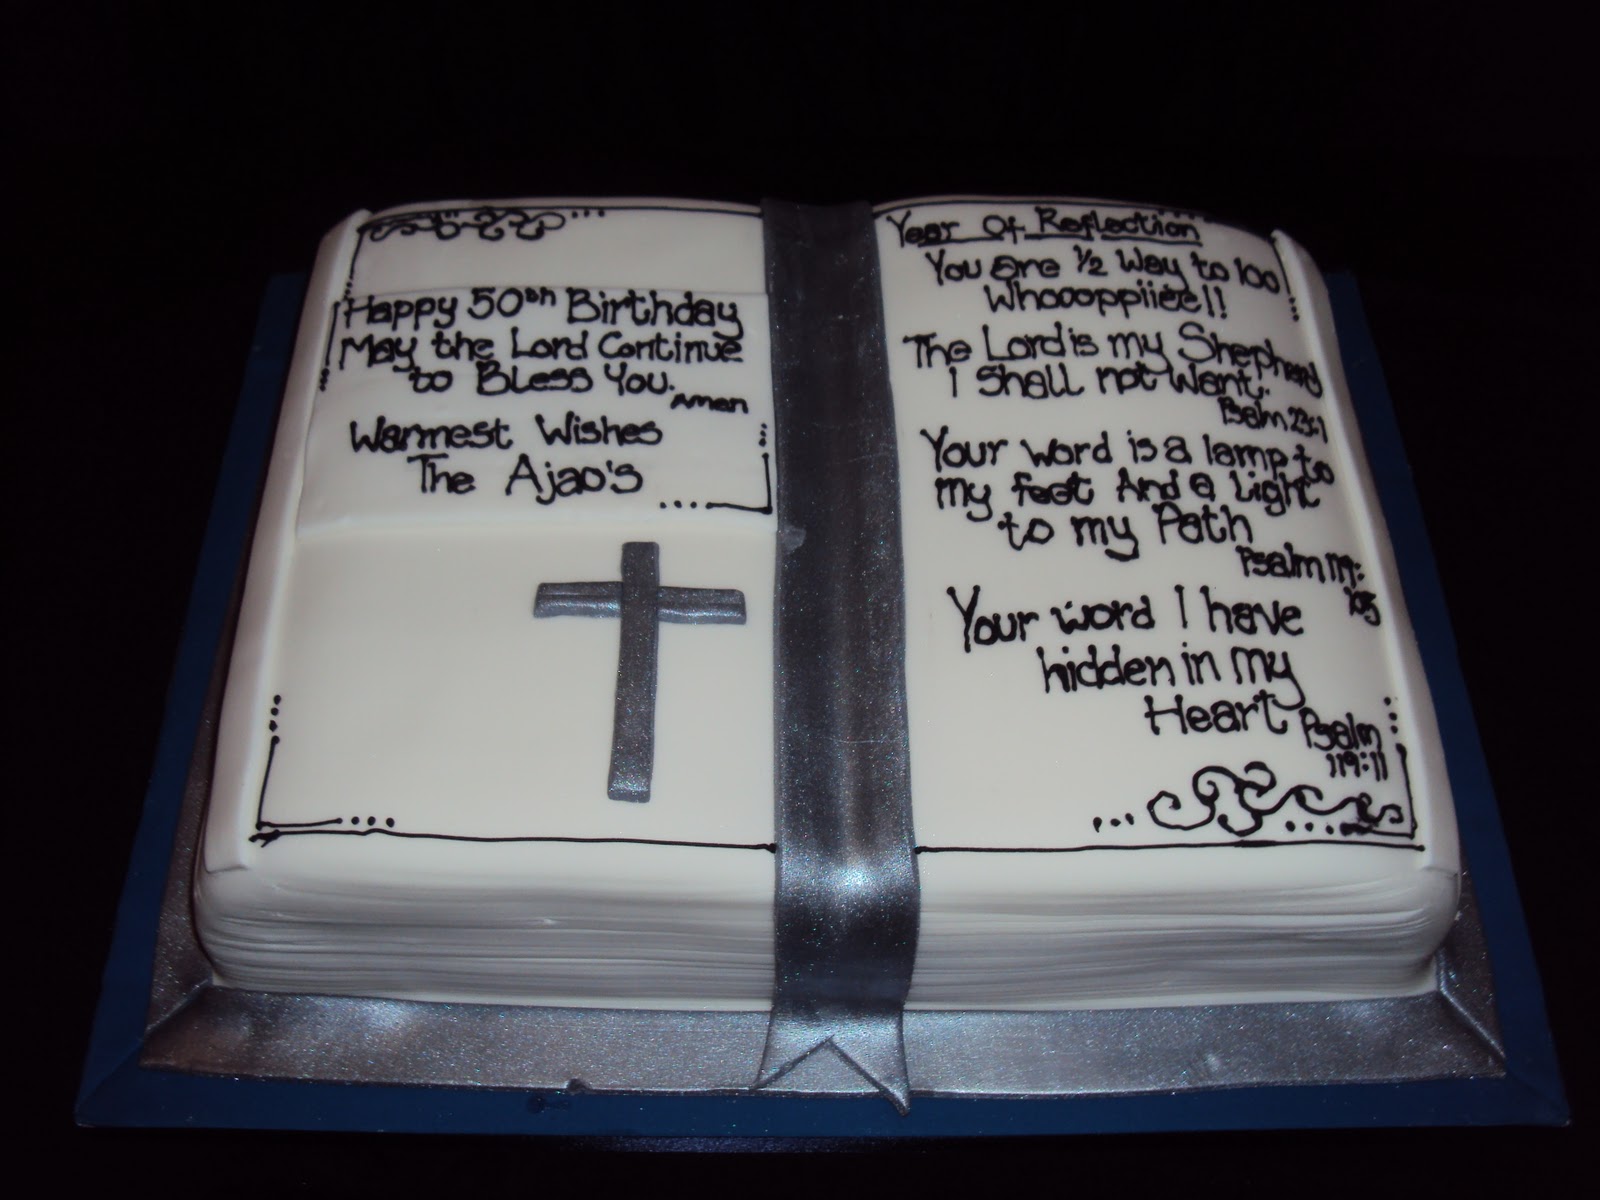 Happy 50th Birthday
May the Lord Continue
to Bless You.
Amen
Warmest Wishes
The Ajao's
Year Of Reflection
You are 1/2 Way to 100
Whoooppiiéee!!
The Lord is my Shepherd
I Shall not Want.
Psalm 23:1
Your word is a lamp to
my feet And a Light
to my Path
Psalm 119:
105
Your word I have
hidden in My
Heart
Psalm
119:11